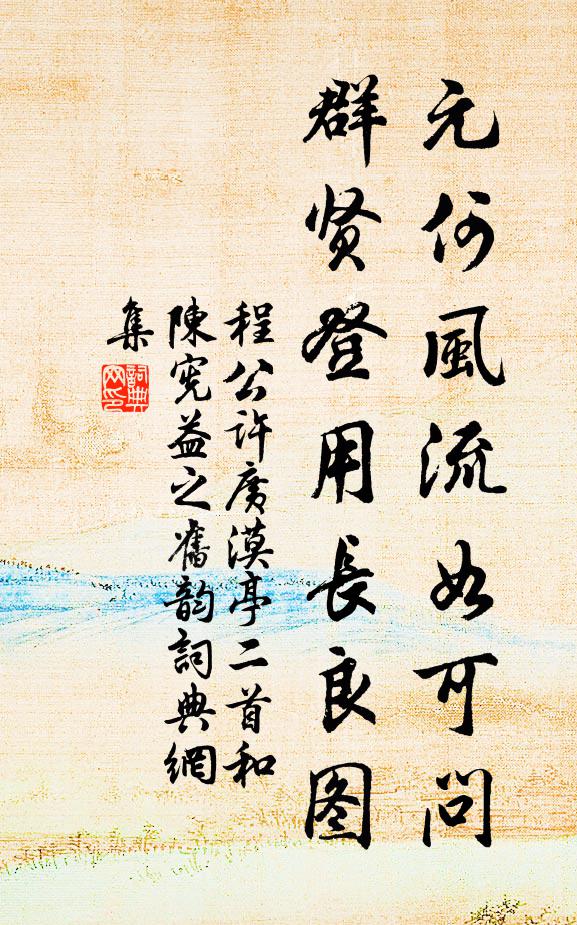 元何風流如可問
群贤登用長良图
程公许廣漠亭二首和
陳宪益之舊韵詞典網
集
詞典網印